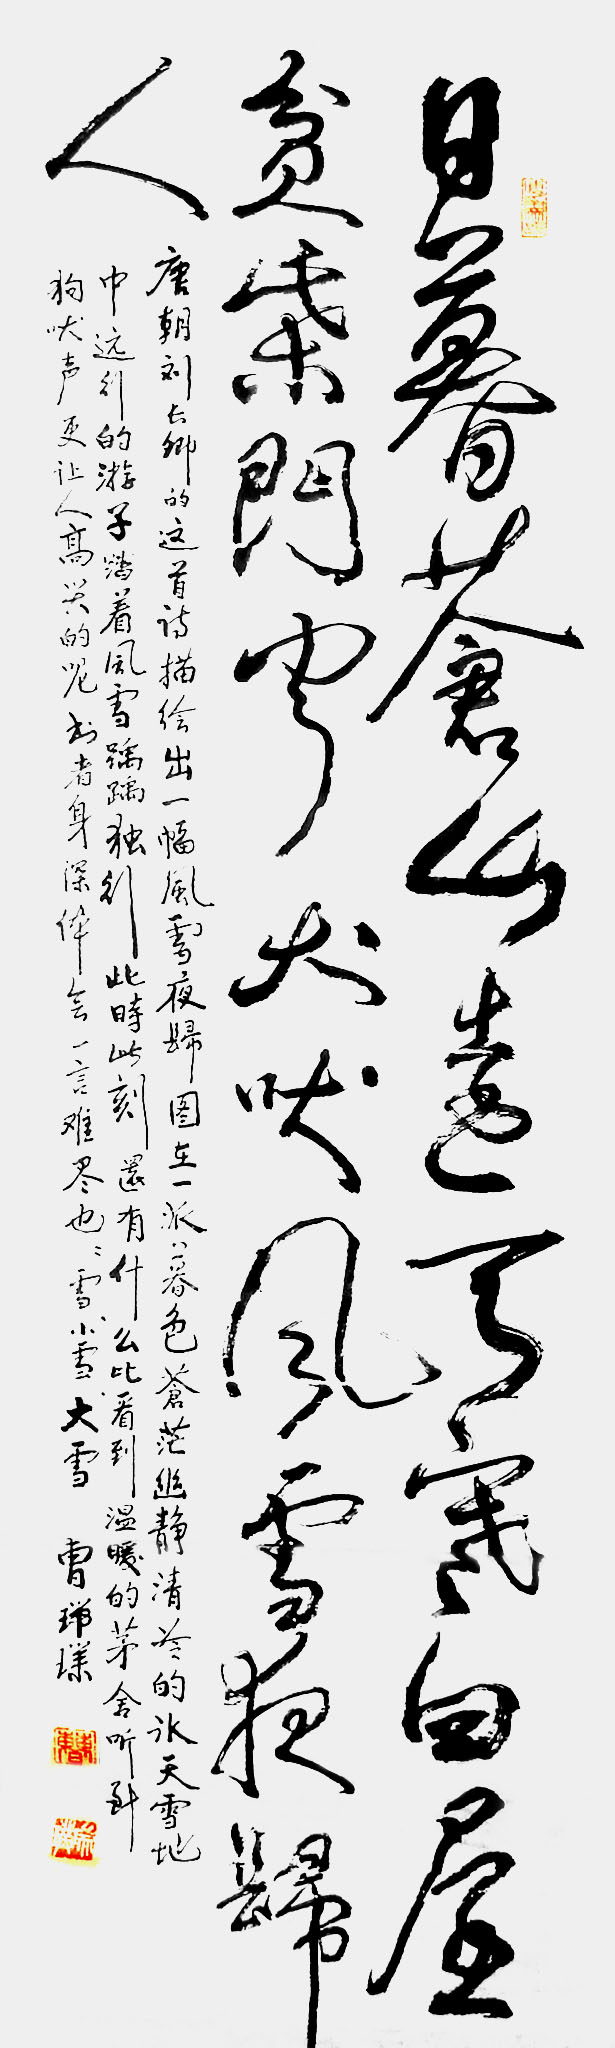 日暮蒼山遠天寒白屋
貧柴門聞犬吠風雪夜歸
人
唐朝刘长卿的这首诗描绘出一幅風雪夜歸图在一派暮色蒼茫幽静清冷的冰天雪地
中远行的游子踏着風雪踽踽独行此時此刻還有什么比看到温暖的茅舍听到
狗吠声更让人高兴的呢书者身深体会一言难尽也雪小雪大雪 曹瑞璞